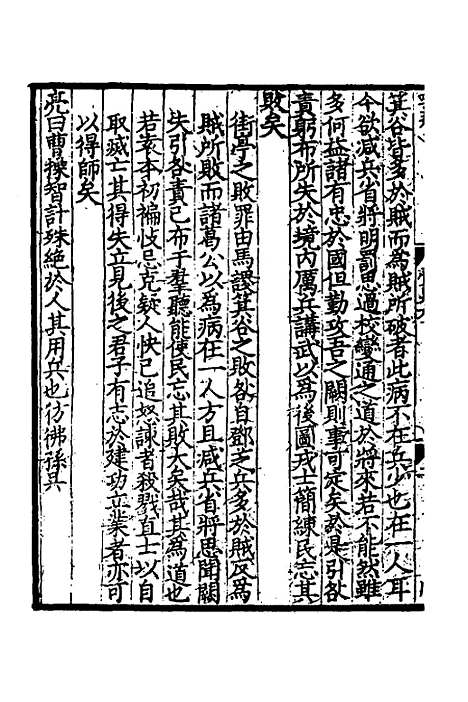 箕谷皆多於賊而為賊所破者此病不在兵少也在一人耳
今欲減兵省將明罰思過校變通之道於將來若不能然雖
多何益諸有忠於國但勤攻吾之闕則事可定矣於是引咎
責躬布所失於境內厲兵講武以為後圖戎士簡練民忘其
敗矣
街亭之敗罪由馬謖箕谷之敗咎自鄧芝兵多於賊反為
賊所敗而諸葛公以為病在一人方且減兵省將思聞闕
失引咎責己布于羣聽能使民忘其敗大矣哉其為道也
若袁本初褊忮忌克疑人快己追怒諫者殺戮直士以自
取滅亡其得失立見後之君子有志於建功立業者亦可
以得師矣
亮曰曹操智計殊絕於人其用兵也彷彿孫吳